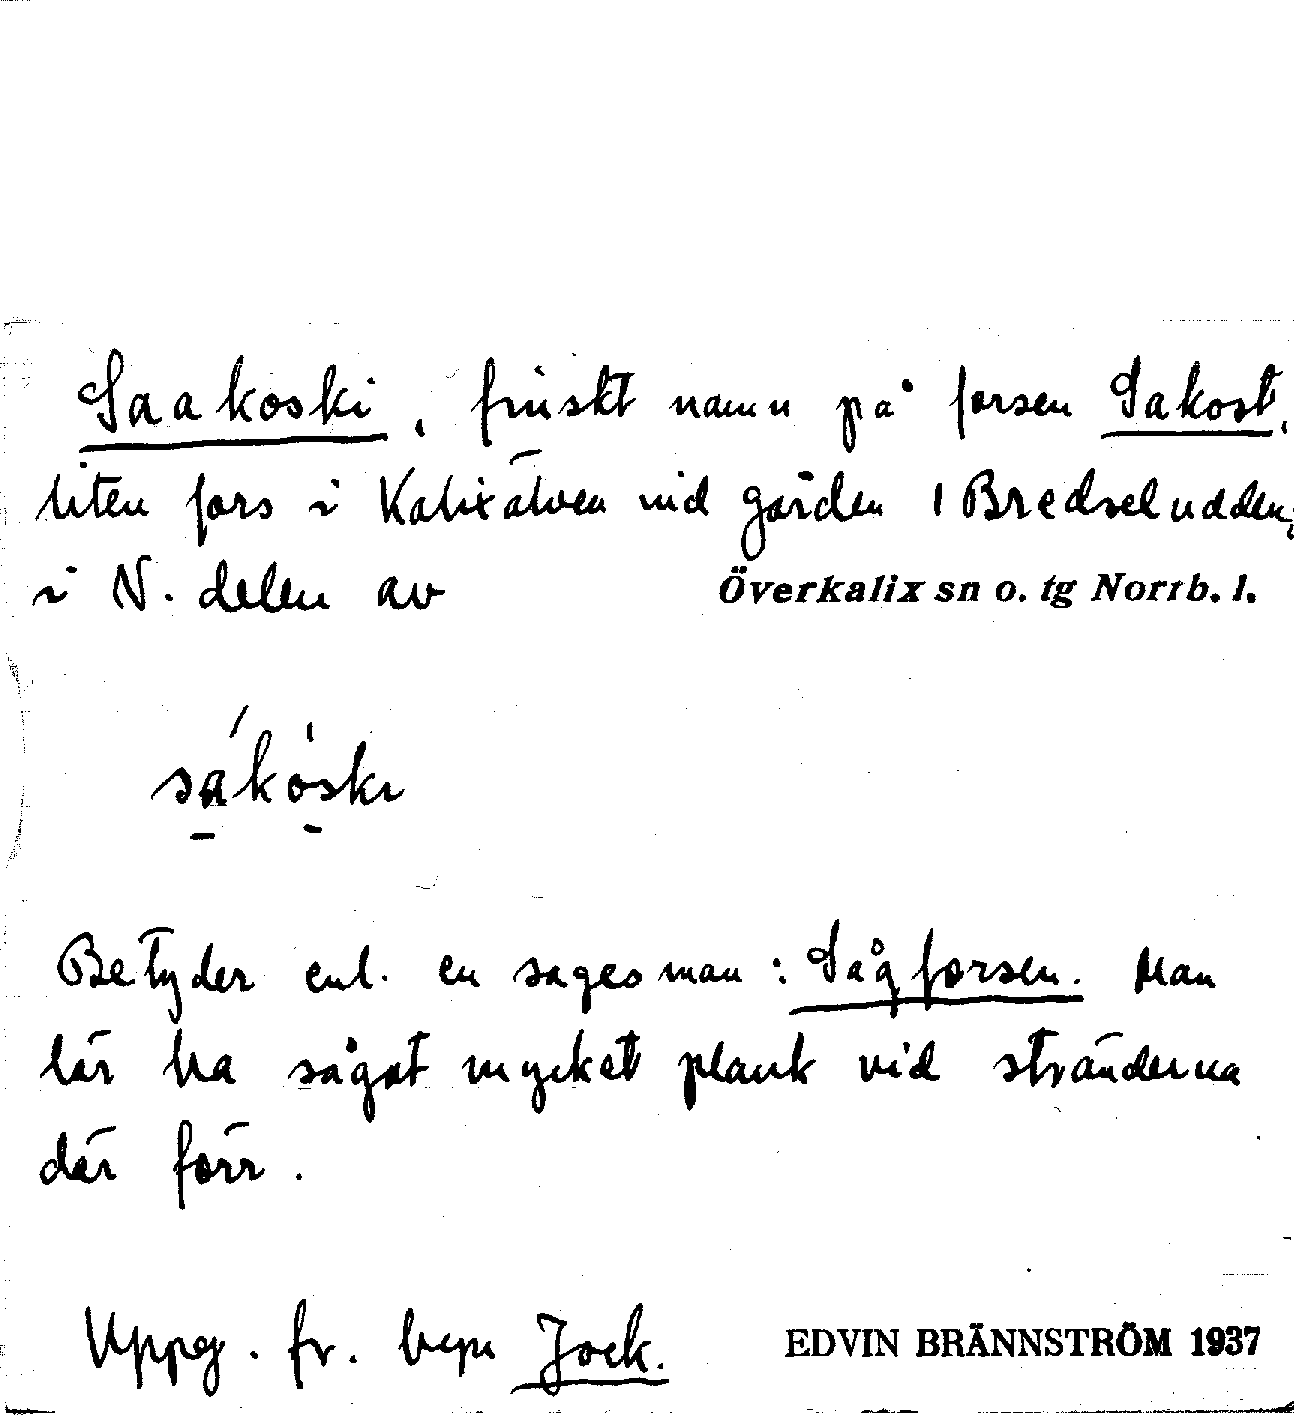 Saakoski, finskt namn på forsen Sakost,
liten fors i Kalixälven vid gården 1 Bredseludden,
i N. delen av Överkalix sn o. tg Norrb. l.
sakoski
Betyder enl. en sagesman: Sågforsen. Man
lär ha sågat mycket plank vid stränderna
där förr.
Uppg. fr. byn Jock. EDVIN BRÄNNSTRÖM 1937